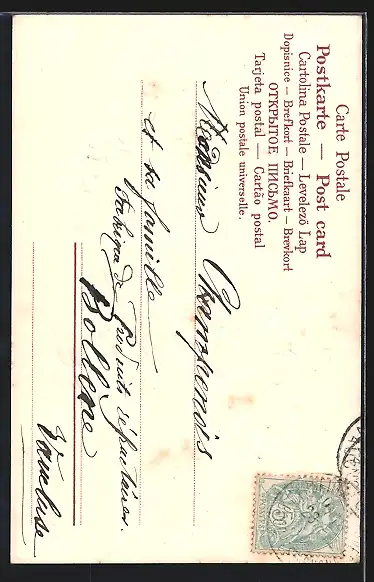 Carte Postale
Postkarte — Post card
Cartolina Postale — Levelező Lap
Dopisnice — Brefkort — Briefkaart — Brevkort
ОТКРЫТОЕ ПИСЬМО.
Tarjeta postal — Cartão postal
Union postale universelle.
Monsieur Champenois
et sa famille
Fabrique de Produits réfractaires.
Bollène
Vaucluse
5c